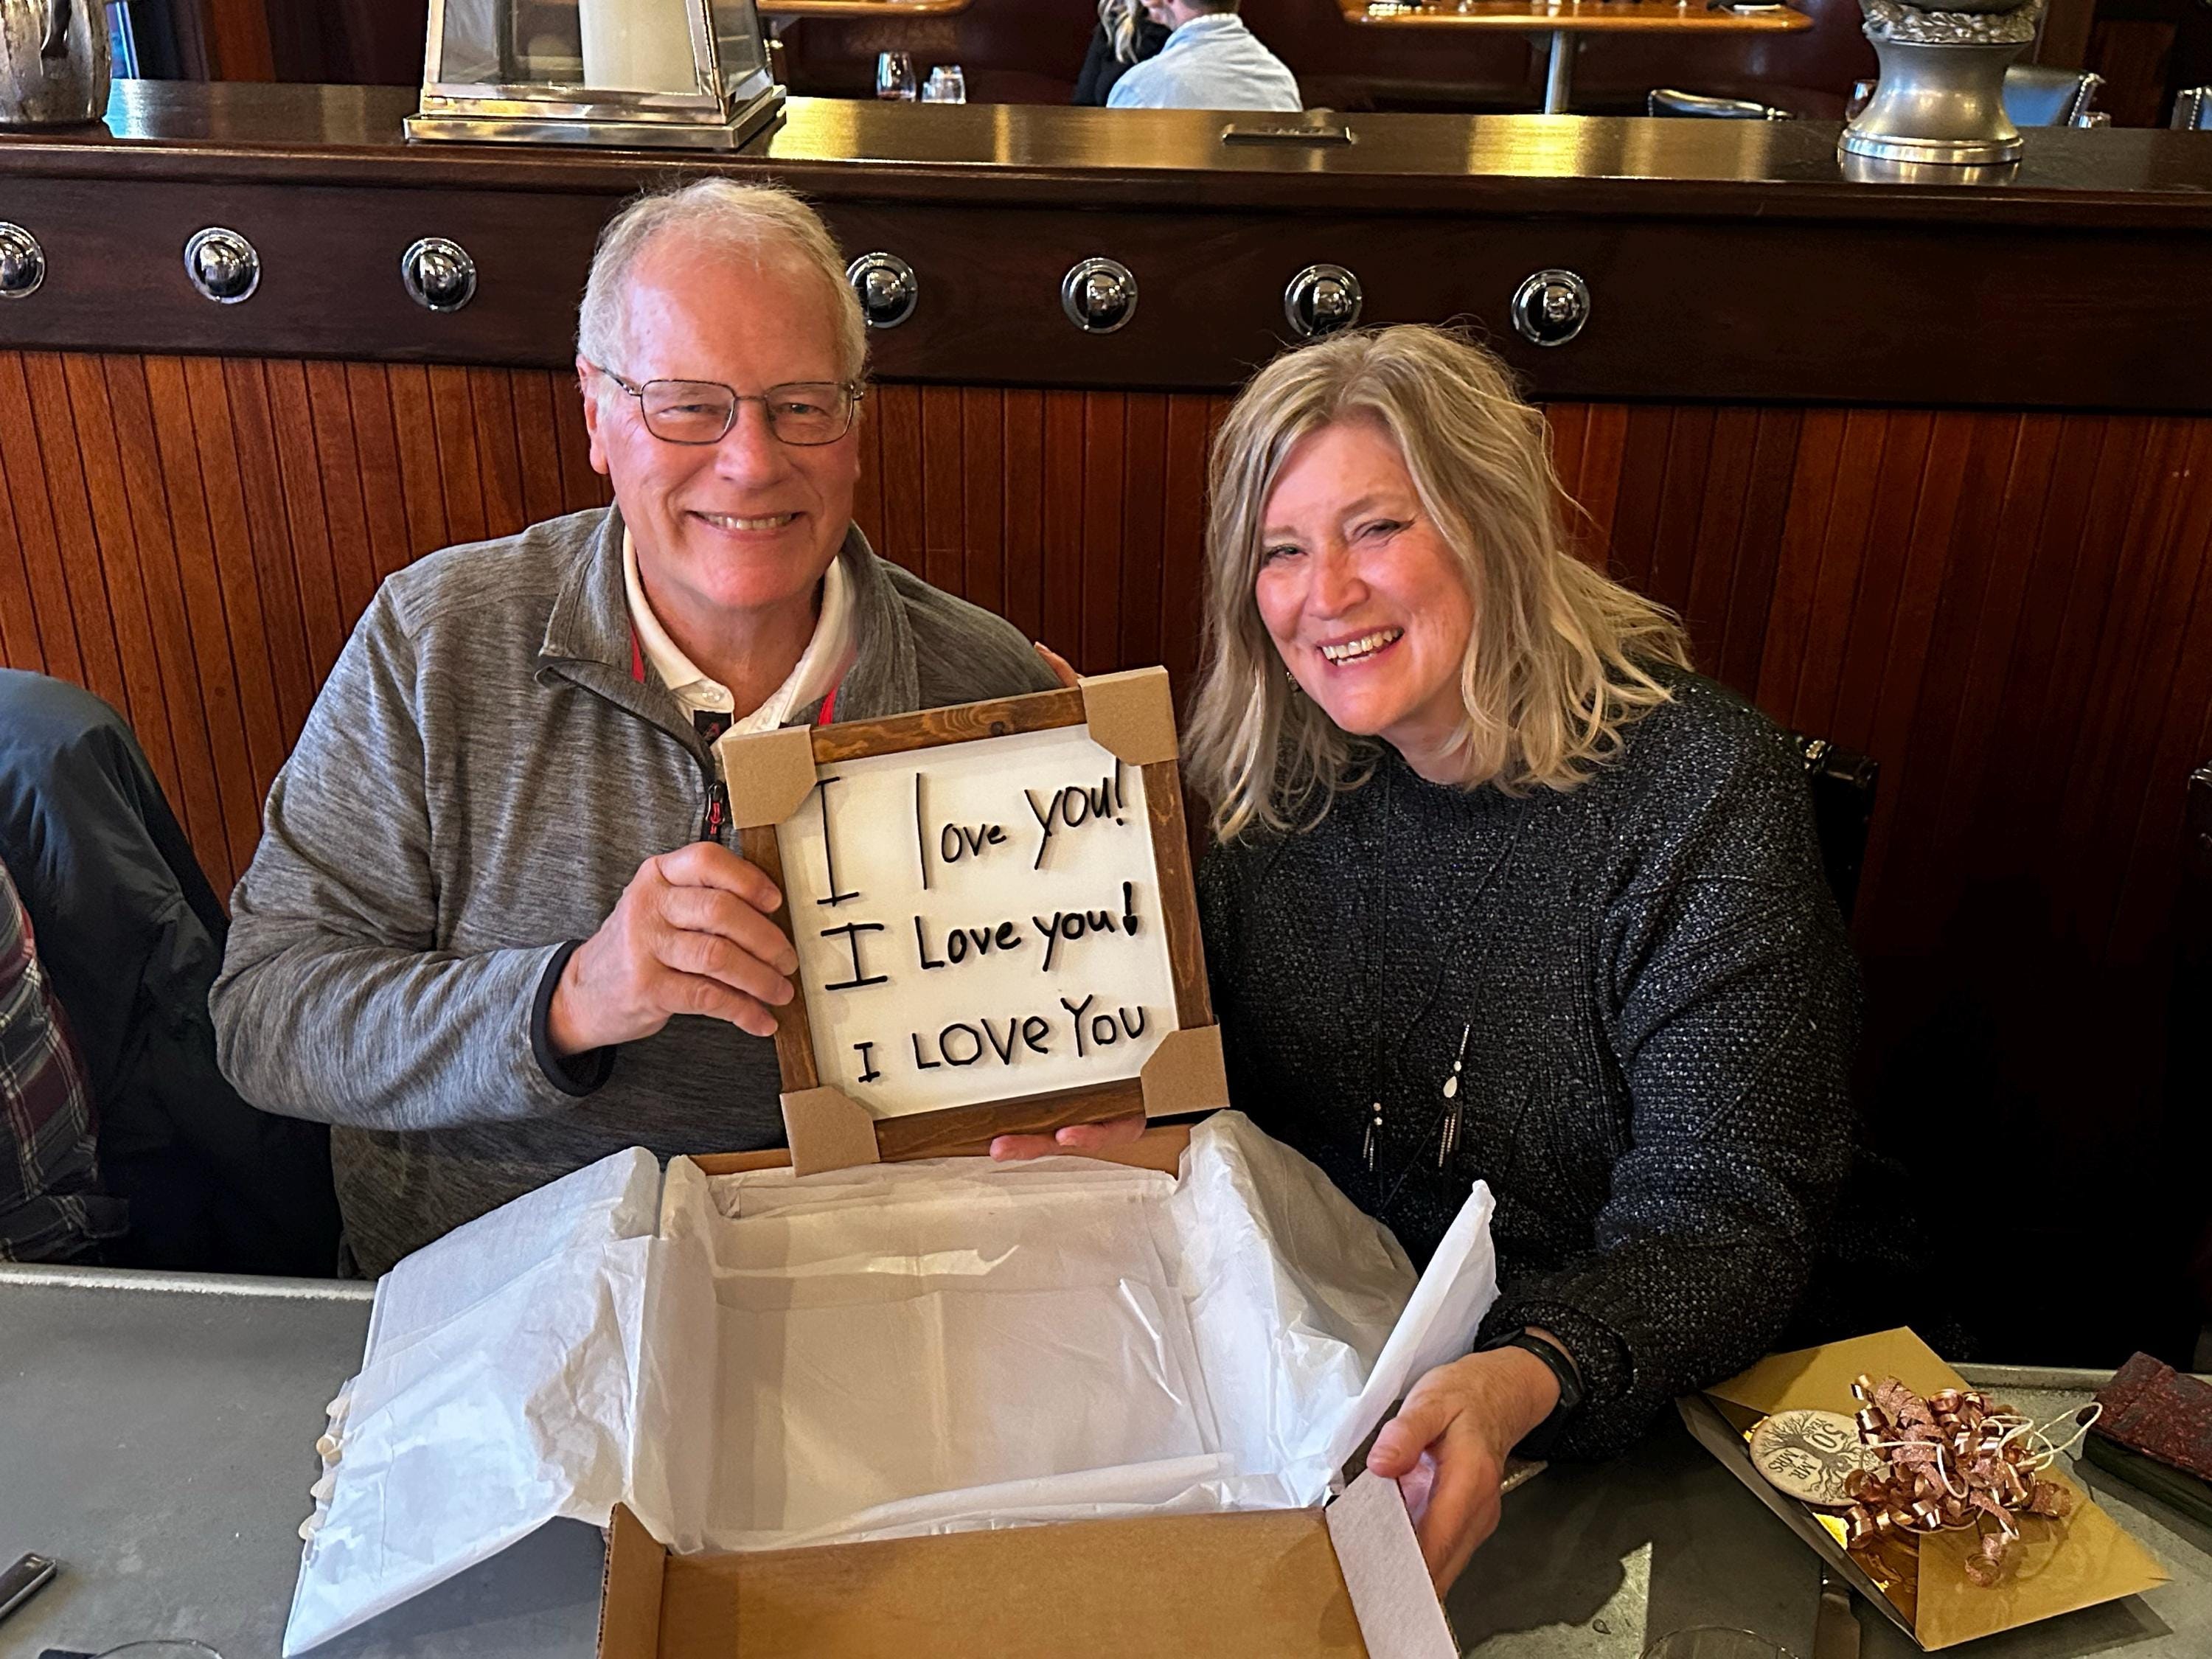 I love you!
I Love you!
I LOVe You
50
YEARS
MR
MRS